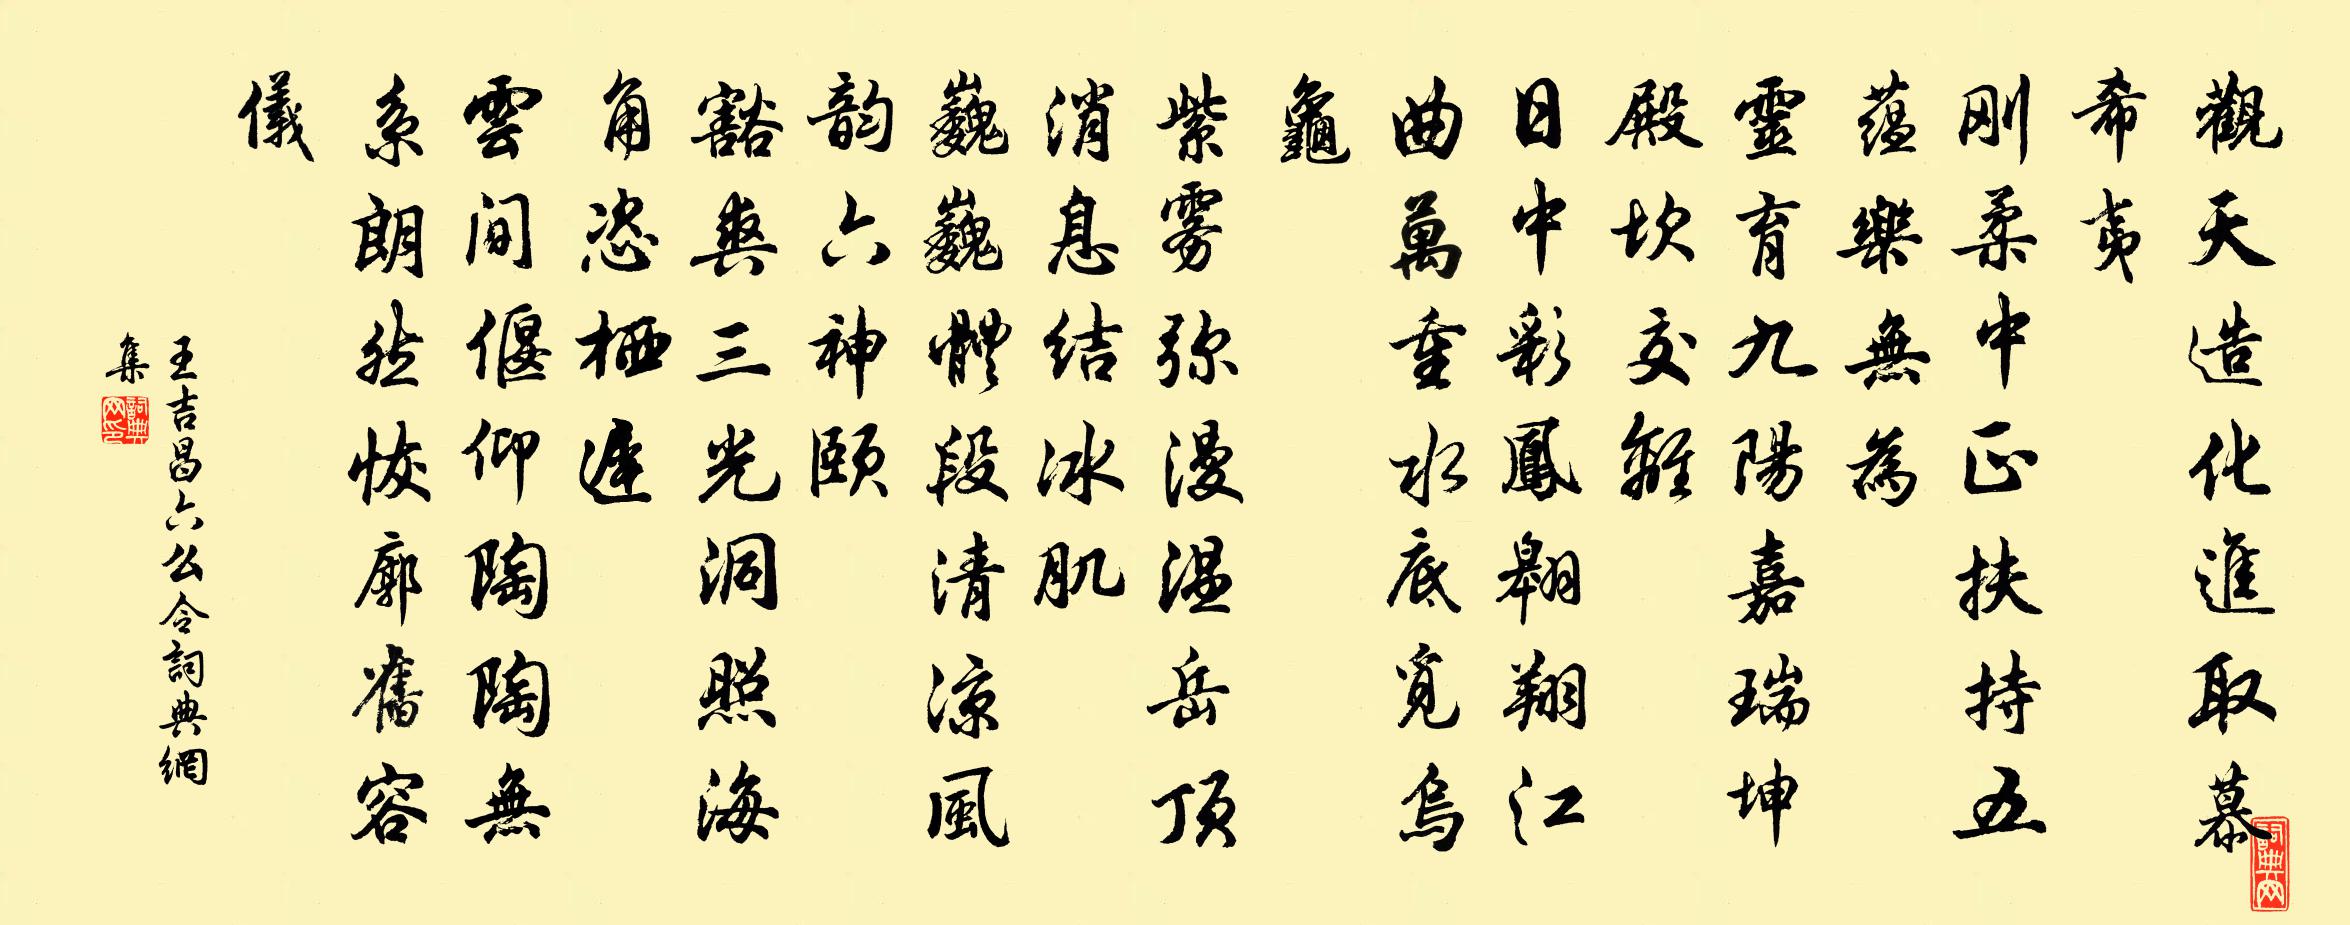 觀天造化進取慕
希夷
剛柔中正扶持五
蕴樂無為
靈育九陽嘉瑞坤
殿坎交離
日中彩鳳翱翔江
曲萬重水底覓烏
龜
紫雾弥漫温岳頂
消息结冰肌
巍巍體段清凉風
韵六神頤
豁爽三光洞照海
角恣栖遲
雲间偃仰陶陶無
系朗然恢廓舊容
儀
王吉昌六么令詞典網
集
詞典网
詞典网印